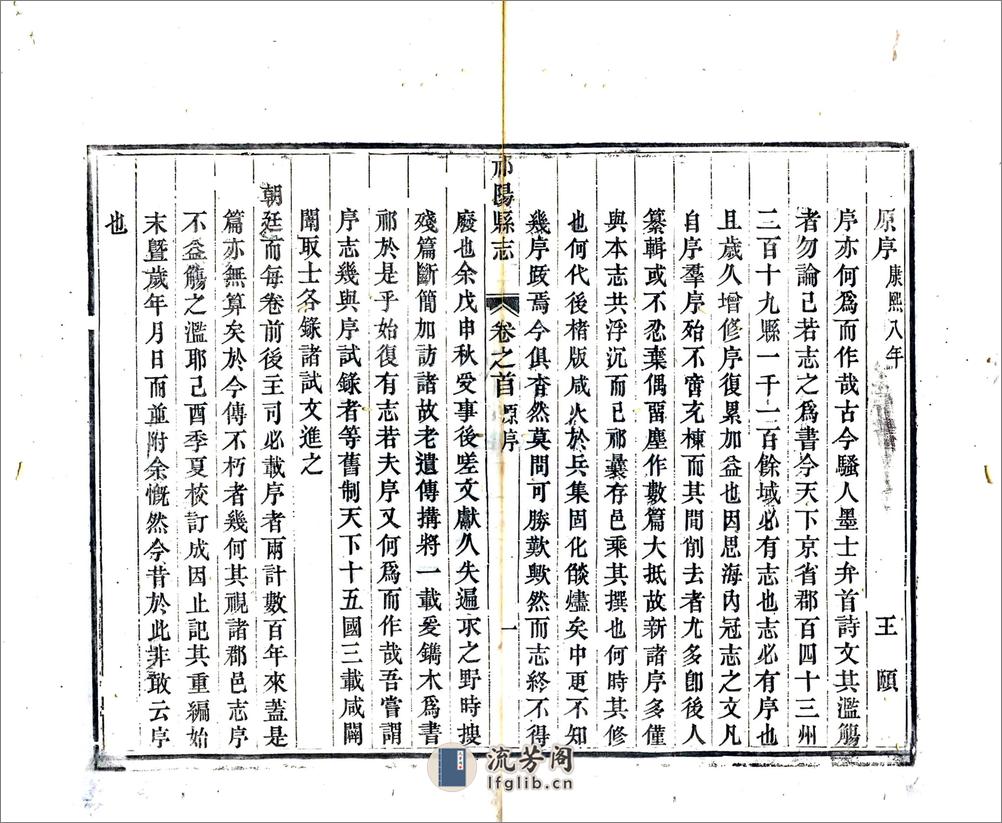 原序 康熙八年 王頤
序亦何爲而作哉古今騷人墨士弁首詩文其濫觴
者勿論已若志之爲書今天下京省郡百四十三州
三百十九縣一千一百餘域必有志也志必有序也
且歲久增修序復累加益也因思海內冠志之文凡
自序羣序殆不啻充棟而其間削去者尤多卽後人
纂輯或不忍棄偶畱塵作數篇大抵故新諸序多僅
與本志共浮沉而已祁曩存邑乘其撰也何時其修
也何代後楮版咸火於兵集固化燄燼矣中更不知
幾序跋焉今俱杳然莫問可勝歎歟然而志終不得
祁陽縣志 卷之首 原序 一
廢也余戊申秋受事後嗟文獻久失遍求之野時搜
殘篇斷簡加訪諸故老遺傳搆將一載爰鐫木爲書
祁於是乎始復有志若夫序又何爲而作哉吾嘗謂
序志幾與序試錄者等舊制天下十五國三載咸闢
闈取士各錄諸試文進之
朝廷而每卷前後主司必載序者兩計數百年來蓋是
篇亦無算矣於今傳不朽者幾何其視諸郡邑志序
不益觴之濫耶己酉季夏校訂成因止記其重編始
末曁歲年月日而並附余慨然今昔於此非敢云序
也
流芳阁
lfglib.cn